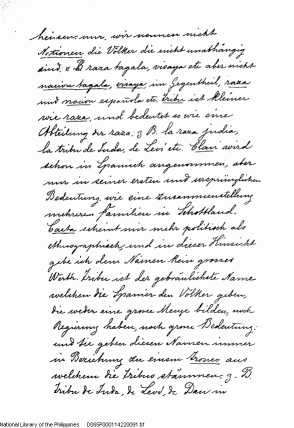 heissen: nur, wir nennen nicht
Nationen die Völker die nicht unabhängig
sind. z B raza tagala, visaya etc aber nicht
nacion tagala, visaya; im Gegentheil, raza
und nacion española etc. tribu ist kleiner
wie raza, und bedeutet so wie eine
Abteilung der raza. z B. la raza judia,
la tribu de Juda, de Levi etc. Clan wird
schon in Spanisch angenommen, aber
nur in seiner ersten und ursprünglichen
Bedeutung, wie eine Zusammenstellung
mehrerer Familien in Schottland.
Casta scheint mir mehr politisch als
ethnographisch, und in dieser Hinsicht
gebe ich dem Namen kein grosses
Werth. Tribu ist der gebräulichste Name
welchen die Spanier den Völker geben,
die weder eine grosse Menge bilden, noch
Regierung haben, noch grosse Bedeutung:
und sie geben diesen Namen immer
in Beziehung zu einem tronco aus
welchem die tribus stämmen; z. B
tribu de Juda, de Levi, de Dan in
National Library of the Philippines D095P000114220091.tif